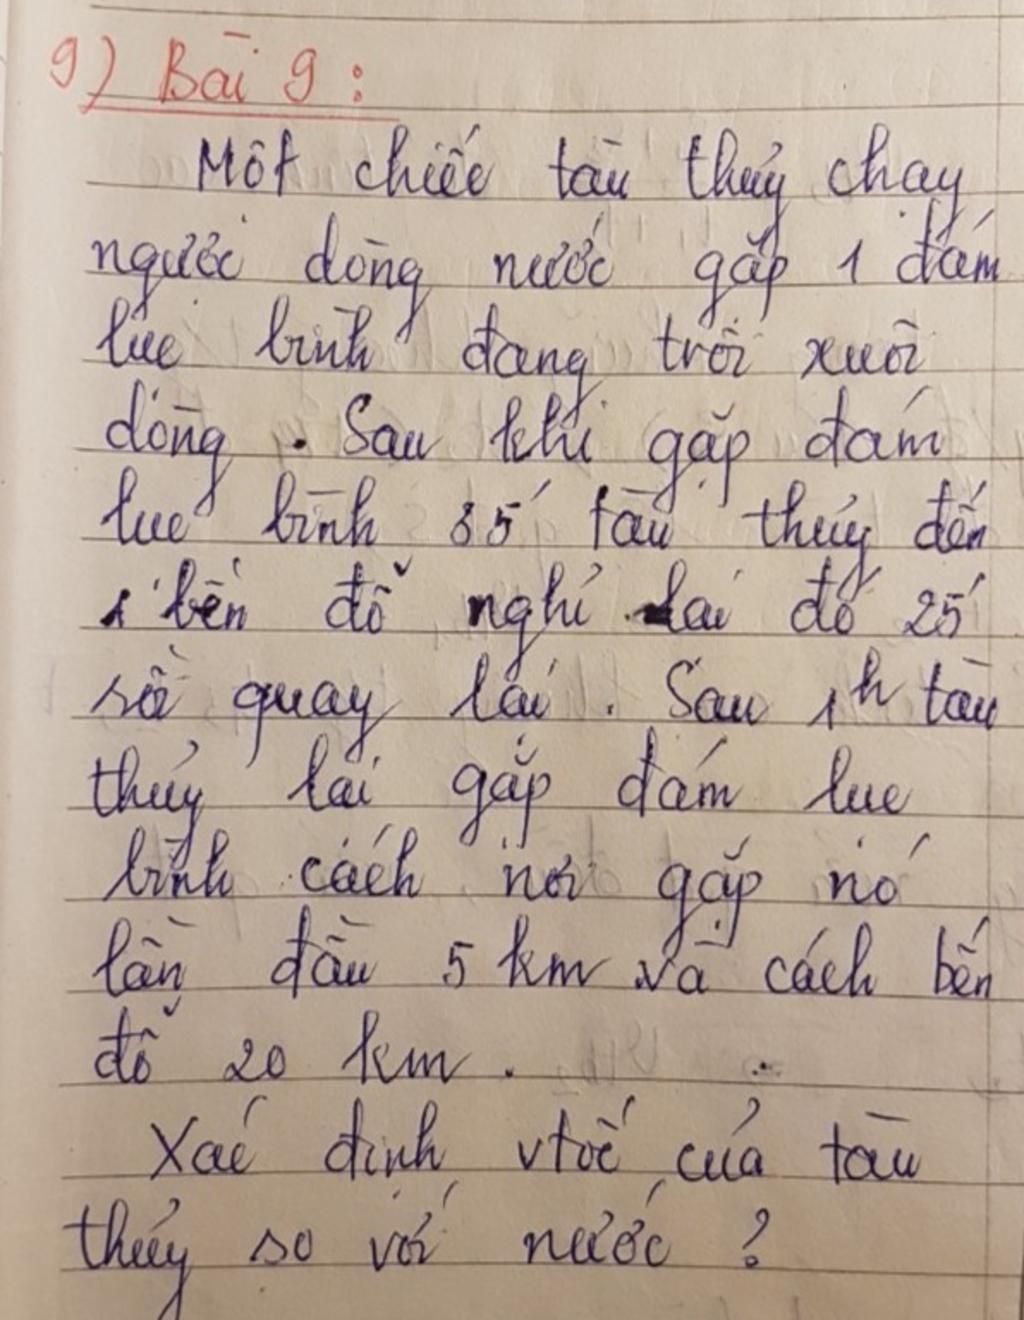 9) Bài 9 :
Một chiếc tàu thủy chạy
ngược dòng nước gặp 1 đám
lục bình đang trôi xuôi
dòng . Sau khi gặp đám
lục bình 35' tàu thủy đến
1 bến đỗ nghỉ lại đó 25'
rồi quay lại . Sau 1h tàu
thủy lại gặp đám lục
bình cách nơi gặp nó
lần đầu 5 km và cách bến
đỗ 20 km .
Xác định vtốc của tàu
thủy so với nước ?